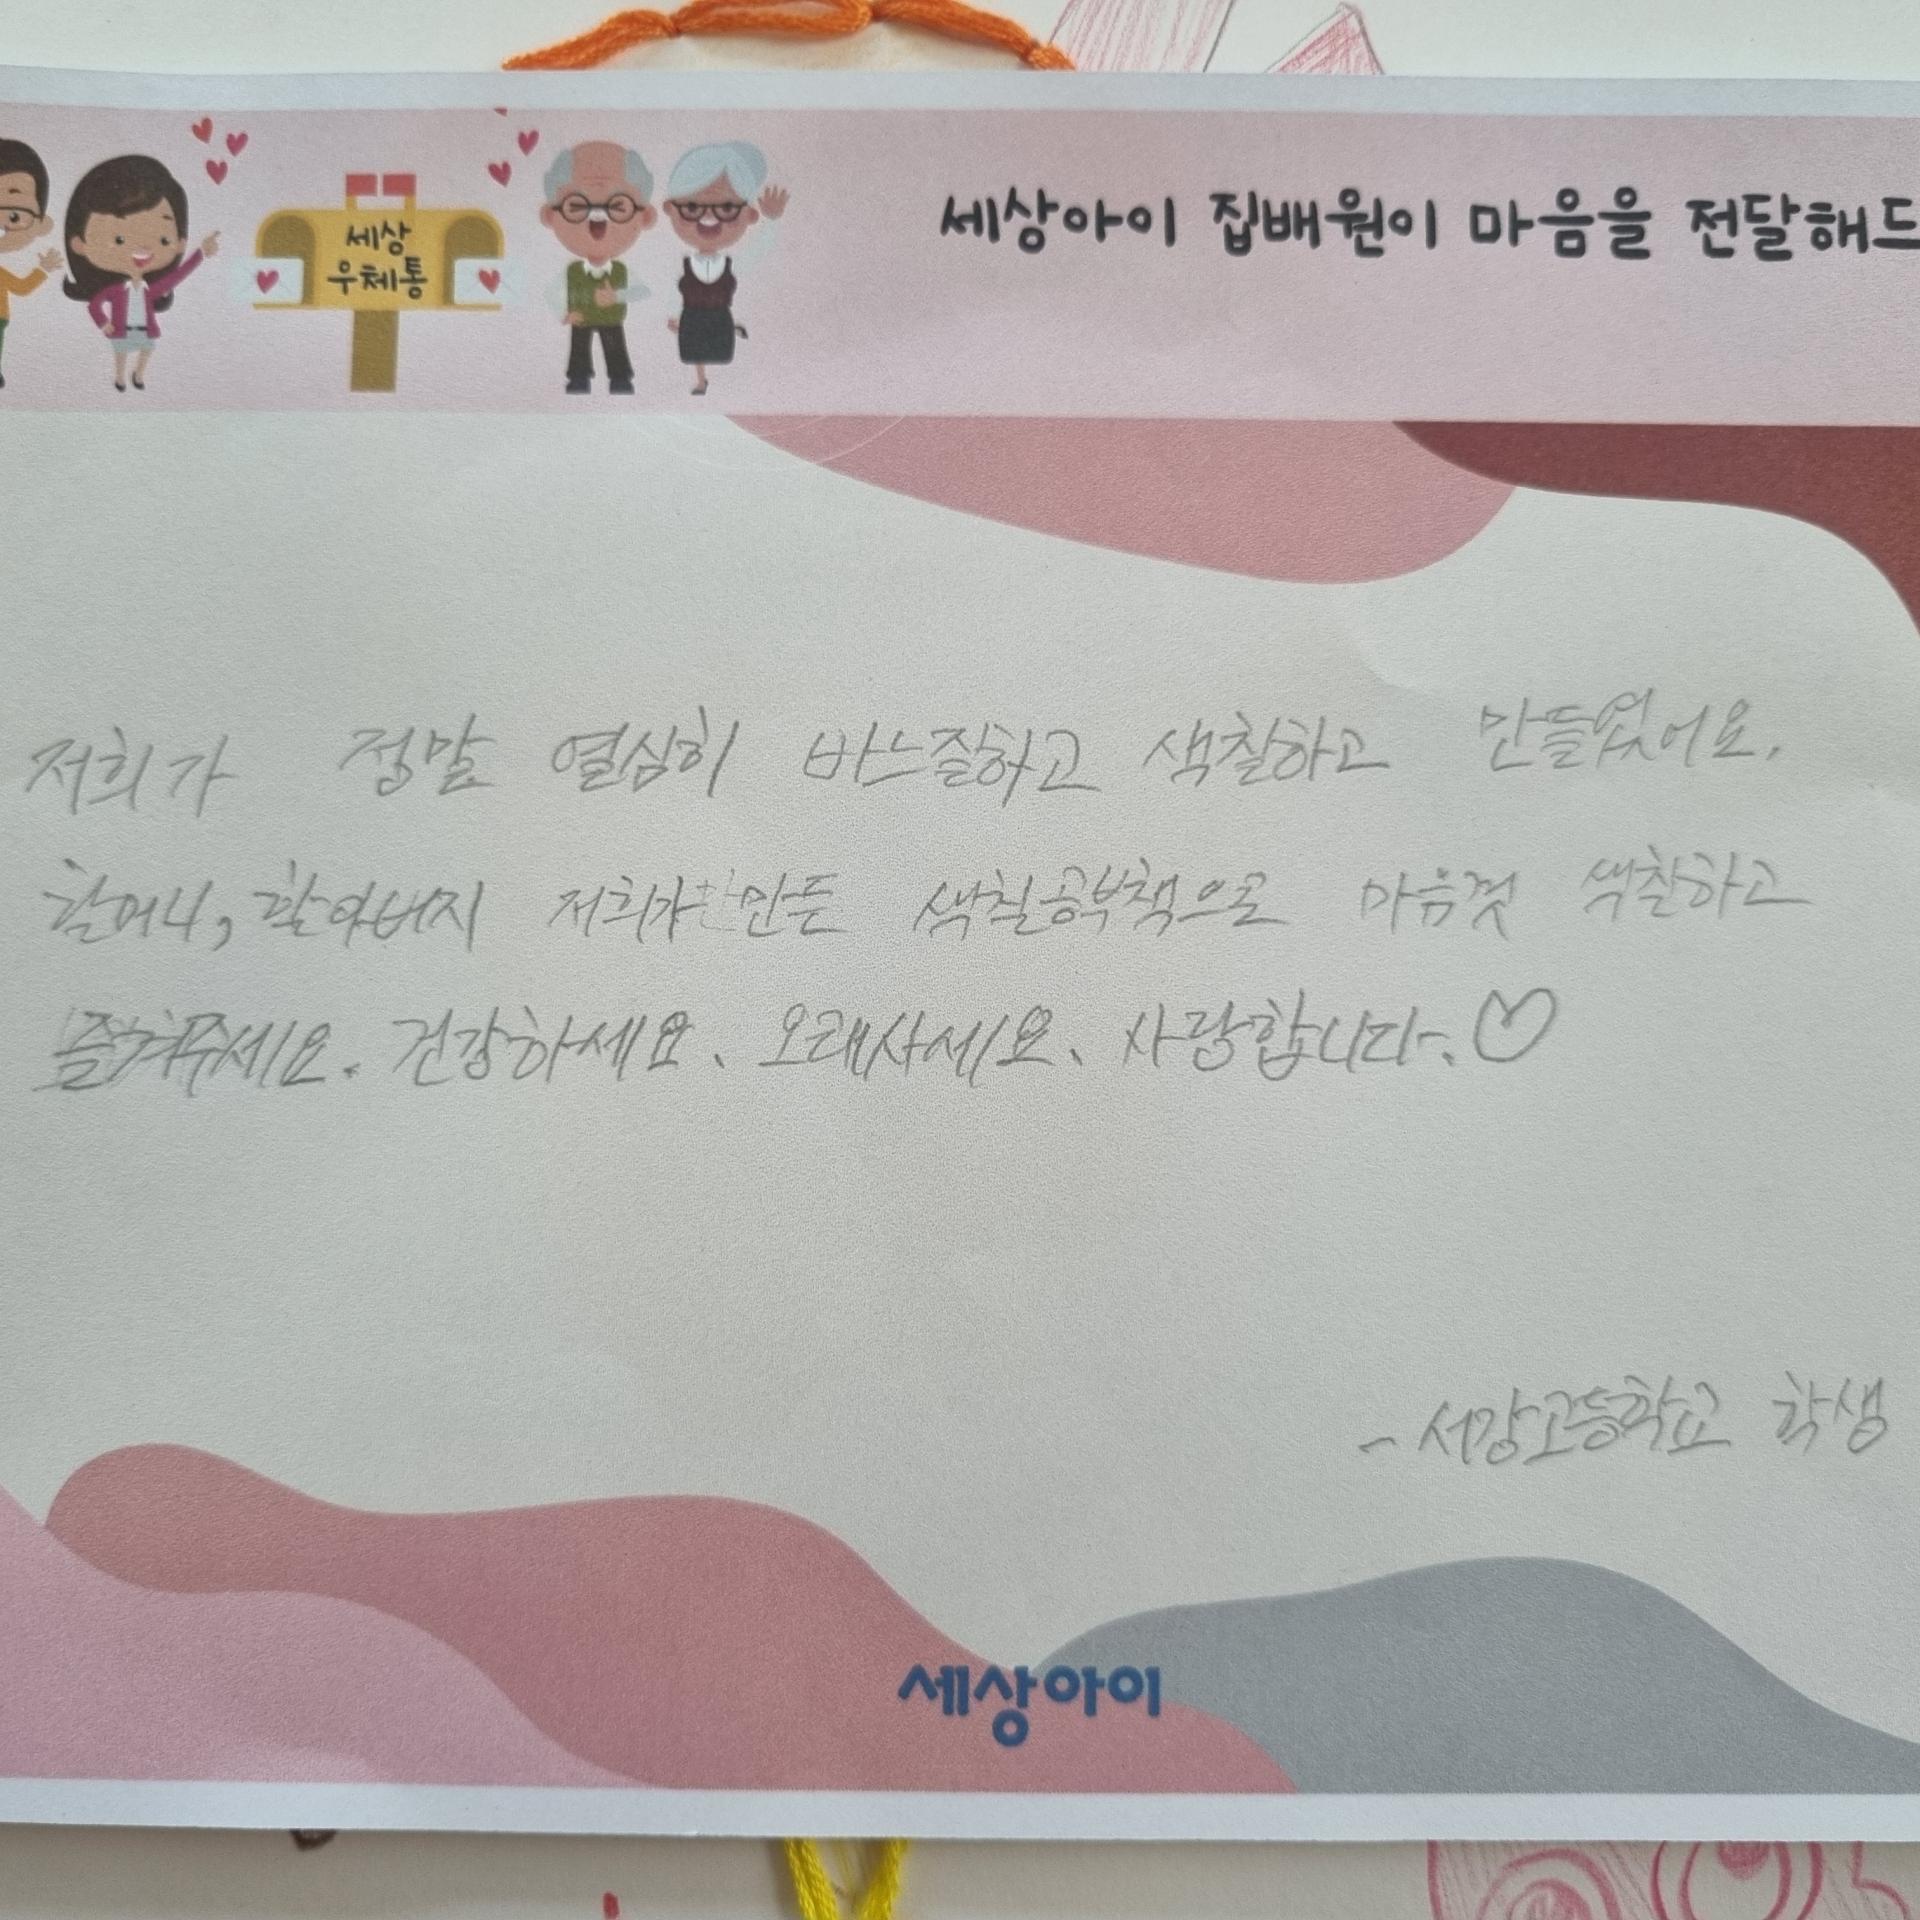 세상
우체통
세상아이 집배원이 마음을 전달해드
저희가 정말 열심히 바느질하고 색칠하고 만들었어요.
할머니, 할아버지 저희가 만든 색칠공부책으로 마음껏 색칠하고
즐겨주세요. 건강하세요. 오래사세요. 사랑합니다.♡
- 서강고등학교 학생
세상아이